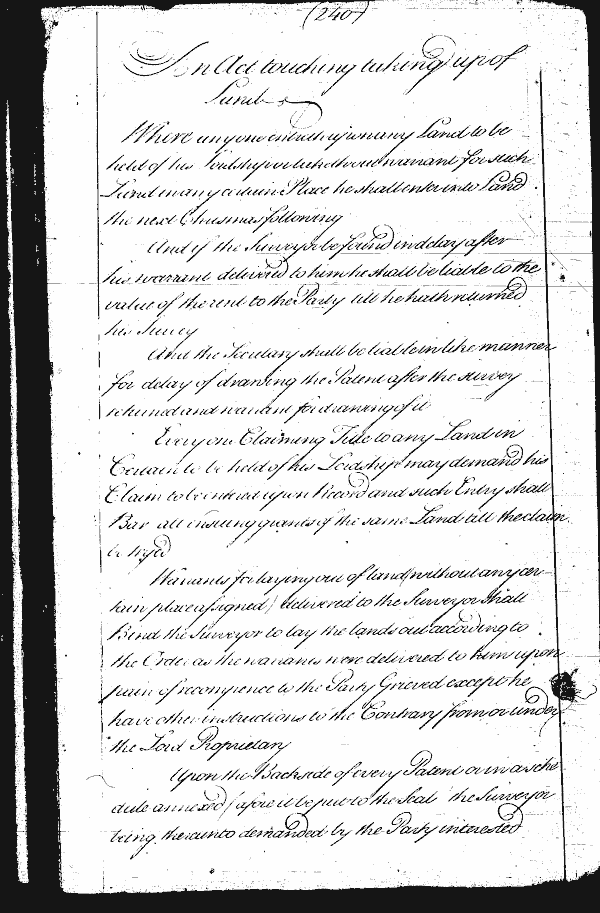 (240)
An Act touching taking up of
Land
Where any one entreth upon any Land to be
held of his Lordship or hath warrant for such
Land in any certain Place he shall enter into Land
the next Christmas following
And if the Surveyor be found in delay after
his warrant delivered to him he shall be liable to the
value of the rent to the Party till he hath returned
his Survey
And the Secretary shall be liable in like manner
for delay of drawing the Patent after the survey
returned and warrant for drawing of it
Every one Claiming Title to any Land in
Certain to be held of his Lordship may demand his
Claim to be entered upon Record and such Entry shall
Bar all ensuing grants of the same Land till the claim
be tryed
Warrants for laying out of land (without any cer-
tain place assigned) delivered to the Surveyor Shall
Bind the Surveyor to lay the lands out according to
the Order as the warrants were delivered to him upon
pain of recompence to the Party Grieved except he
have other instructions to the Contrary from or under
the Lord Proprietary
Upon the Backside of every Patent or in a sche
dule annexed (afore it be put to the Seal the Surveyor
being thereunto demanded by the Party interested